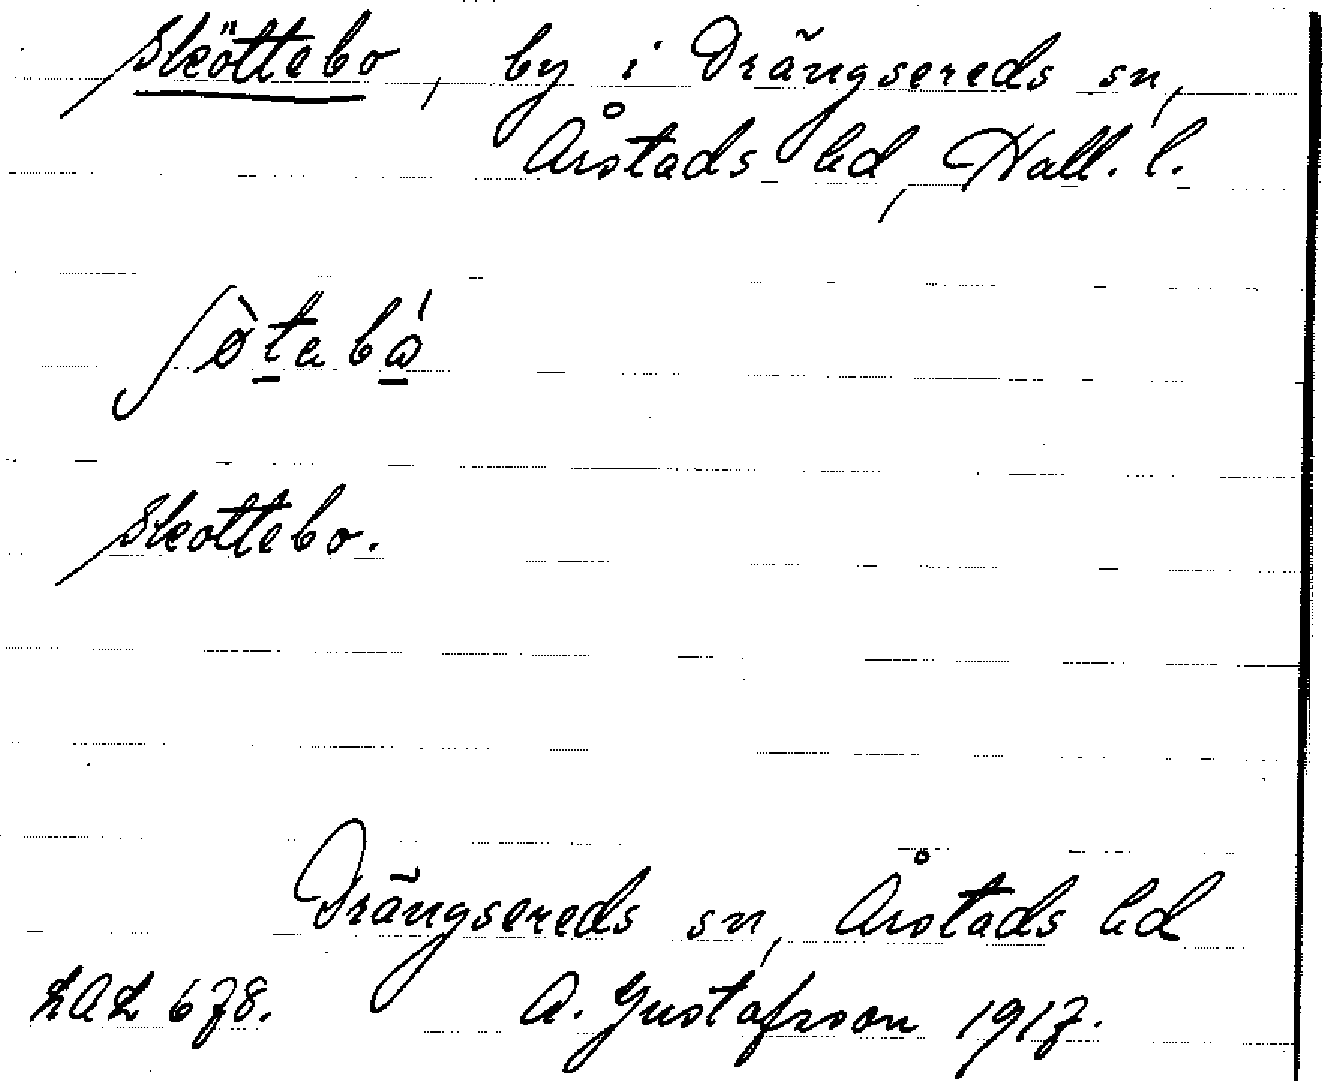 Sköttebo, by i Drängsereds sn,
Årstads hd, Hall. l.
ʃø̀tabó
Skottebo.
Drängsereds sn, Årstads hd
LAL 678. A. Gustafsson 1917.